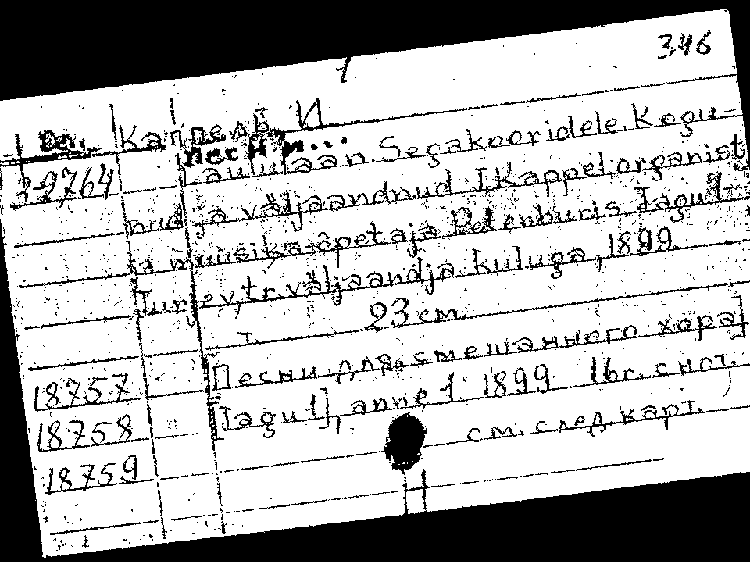 346
1
Вп. Каппель, И
песни...
39764 Laululaan. Segakooridele. Kogu-
nud ja väljaandnud I. Kappel, organist
ja muusikaõpetaja Petenburis. Jagu 1.
Jurjev, tr. väljaandja kuluga, 1899.
т. 23 см.
[Песни для смешанного хора]
18757 Jagu 1], anne 1. 1899 16с. с нот.
18758 см. след. карт.
18759